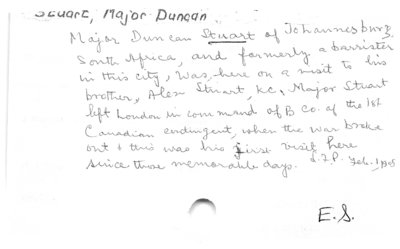 Stuart, Major Duncan
Major Duncan Stuart of Johannesburg,
South Africa, and formerly a barrister
in this city, was here on a visit to his
brother, Alex Stuart, K.C., Major Stuart
left London in command of B Co. of the 1st
Canadian contingent, when the war broke
out & this was his first visit here
since those memorable days. Feb. 1, 1905
E.S.